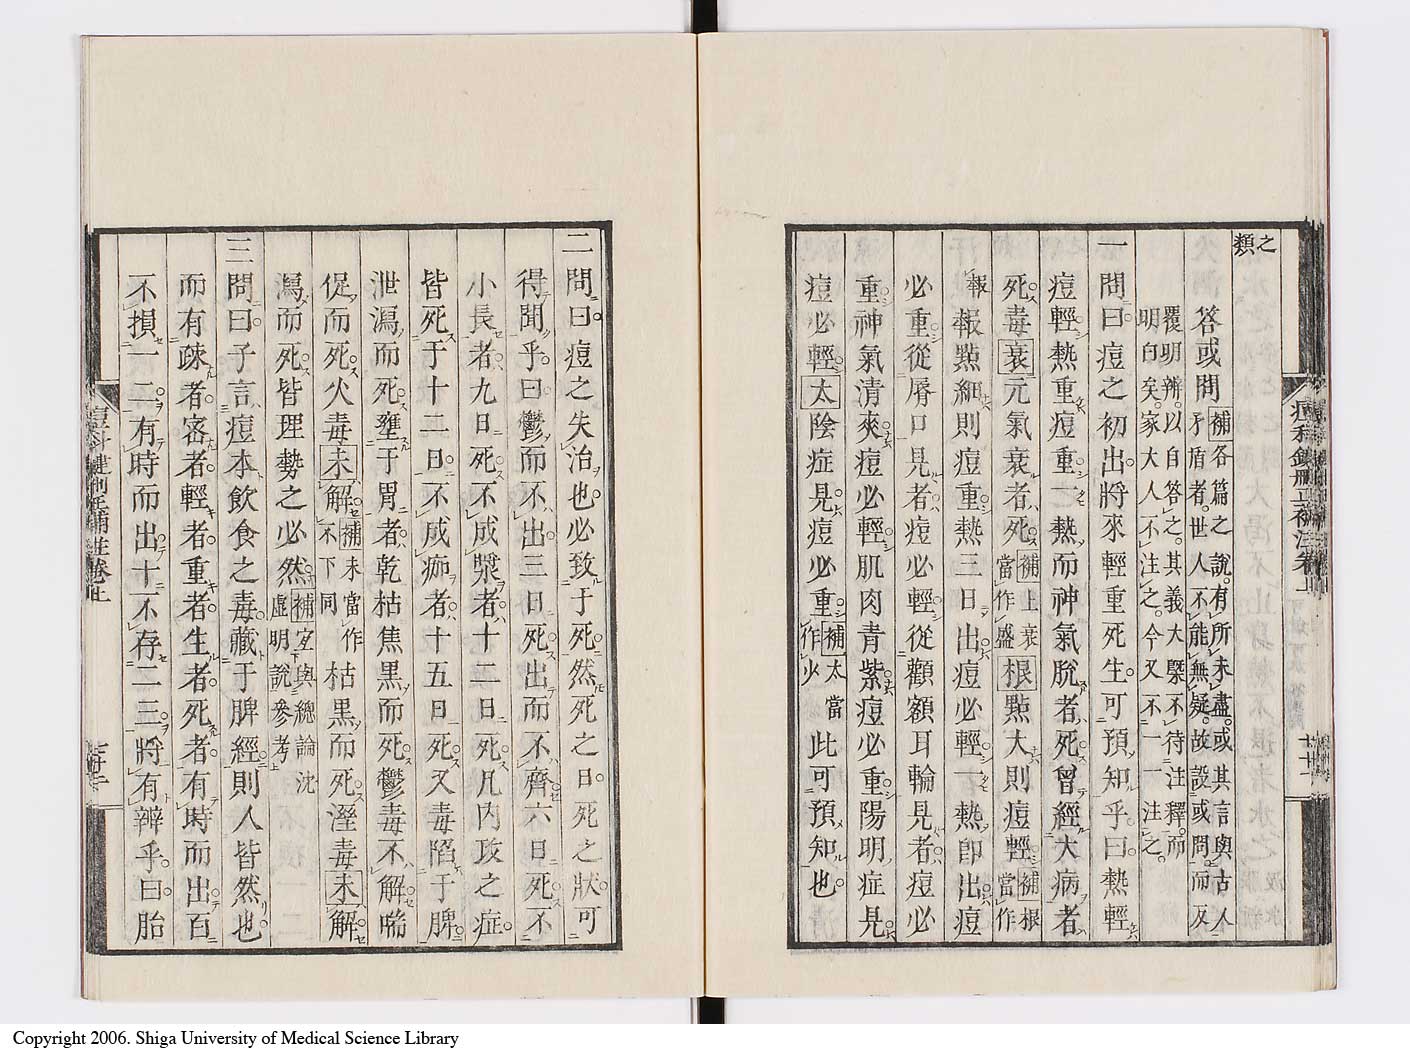 之
類
答或問 補 各篇之說。有所未盡。或其言與古人
矛盾者。世人不能無疑。故設或問。而反
覆明辨。以自答之。其義大槩不待注釋。而
明白矣。家大人不注之。今又不一一注之。
一問曰痘之初出將來輕重死生可預知乎曰熱輕
痘輕熱重痘重一熱而神氣脫者死曾經大病者
死毒衰元氣衰者死 補 上衰當作盛 根點大則痘輕 補 根當作
報 報點細則痘重熱三日出痘必輕一熱即出痘
必重從唇口見者痘必輕從顴額耳輪見者痘必
重神氣清爽痘必輕肌肉青紫痘必重陽明症見
痘必輕太陰症見痘必重 補 太當作少 此可預知也
痘科鍵刪正補注卷上
二問曰痘之失治也必致于死然死之日死之狀可
得聞乎曰鬱而不出三日死出而不齊六日死不
小長者九日死不成漿者十二日死凡內攻之症
皆死于十二日不成痂者十五日死又毒陷于脾
泄瀉而死壅于胃者乾枯焦黑而死鬱毒不解喘
促而死火毒未解 補 未當作不下同 枯黑而死溼毒未解
瀉而死皆理勢之必然 補 宜與總論沈虛明說參考
三問曰子言痘本飲食之毒藏于脾經則人皆然也
而有疎者密者輕者重者生者死者有時而出百
不損一二有時而出十不存二三將有辨乎曰胎
痘科鍵刪正補註卷上
Copyright 2006. Shiga University of Medical Science Library